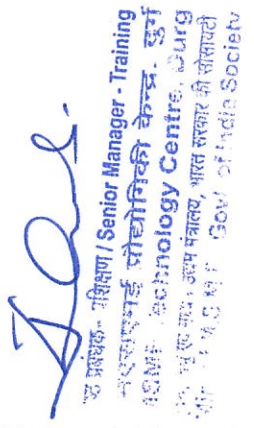 प्रबंधक - प्रशिक्षण / Senior Manager - Training
एमएसएमई प्रौद्योगिकी केन्द्र, दुर्ग
MSME Technology Centre, Durg
मंत्रालय, भारत सरकार की सोसायटी
Govt of India Society